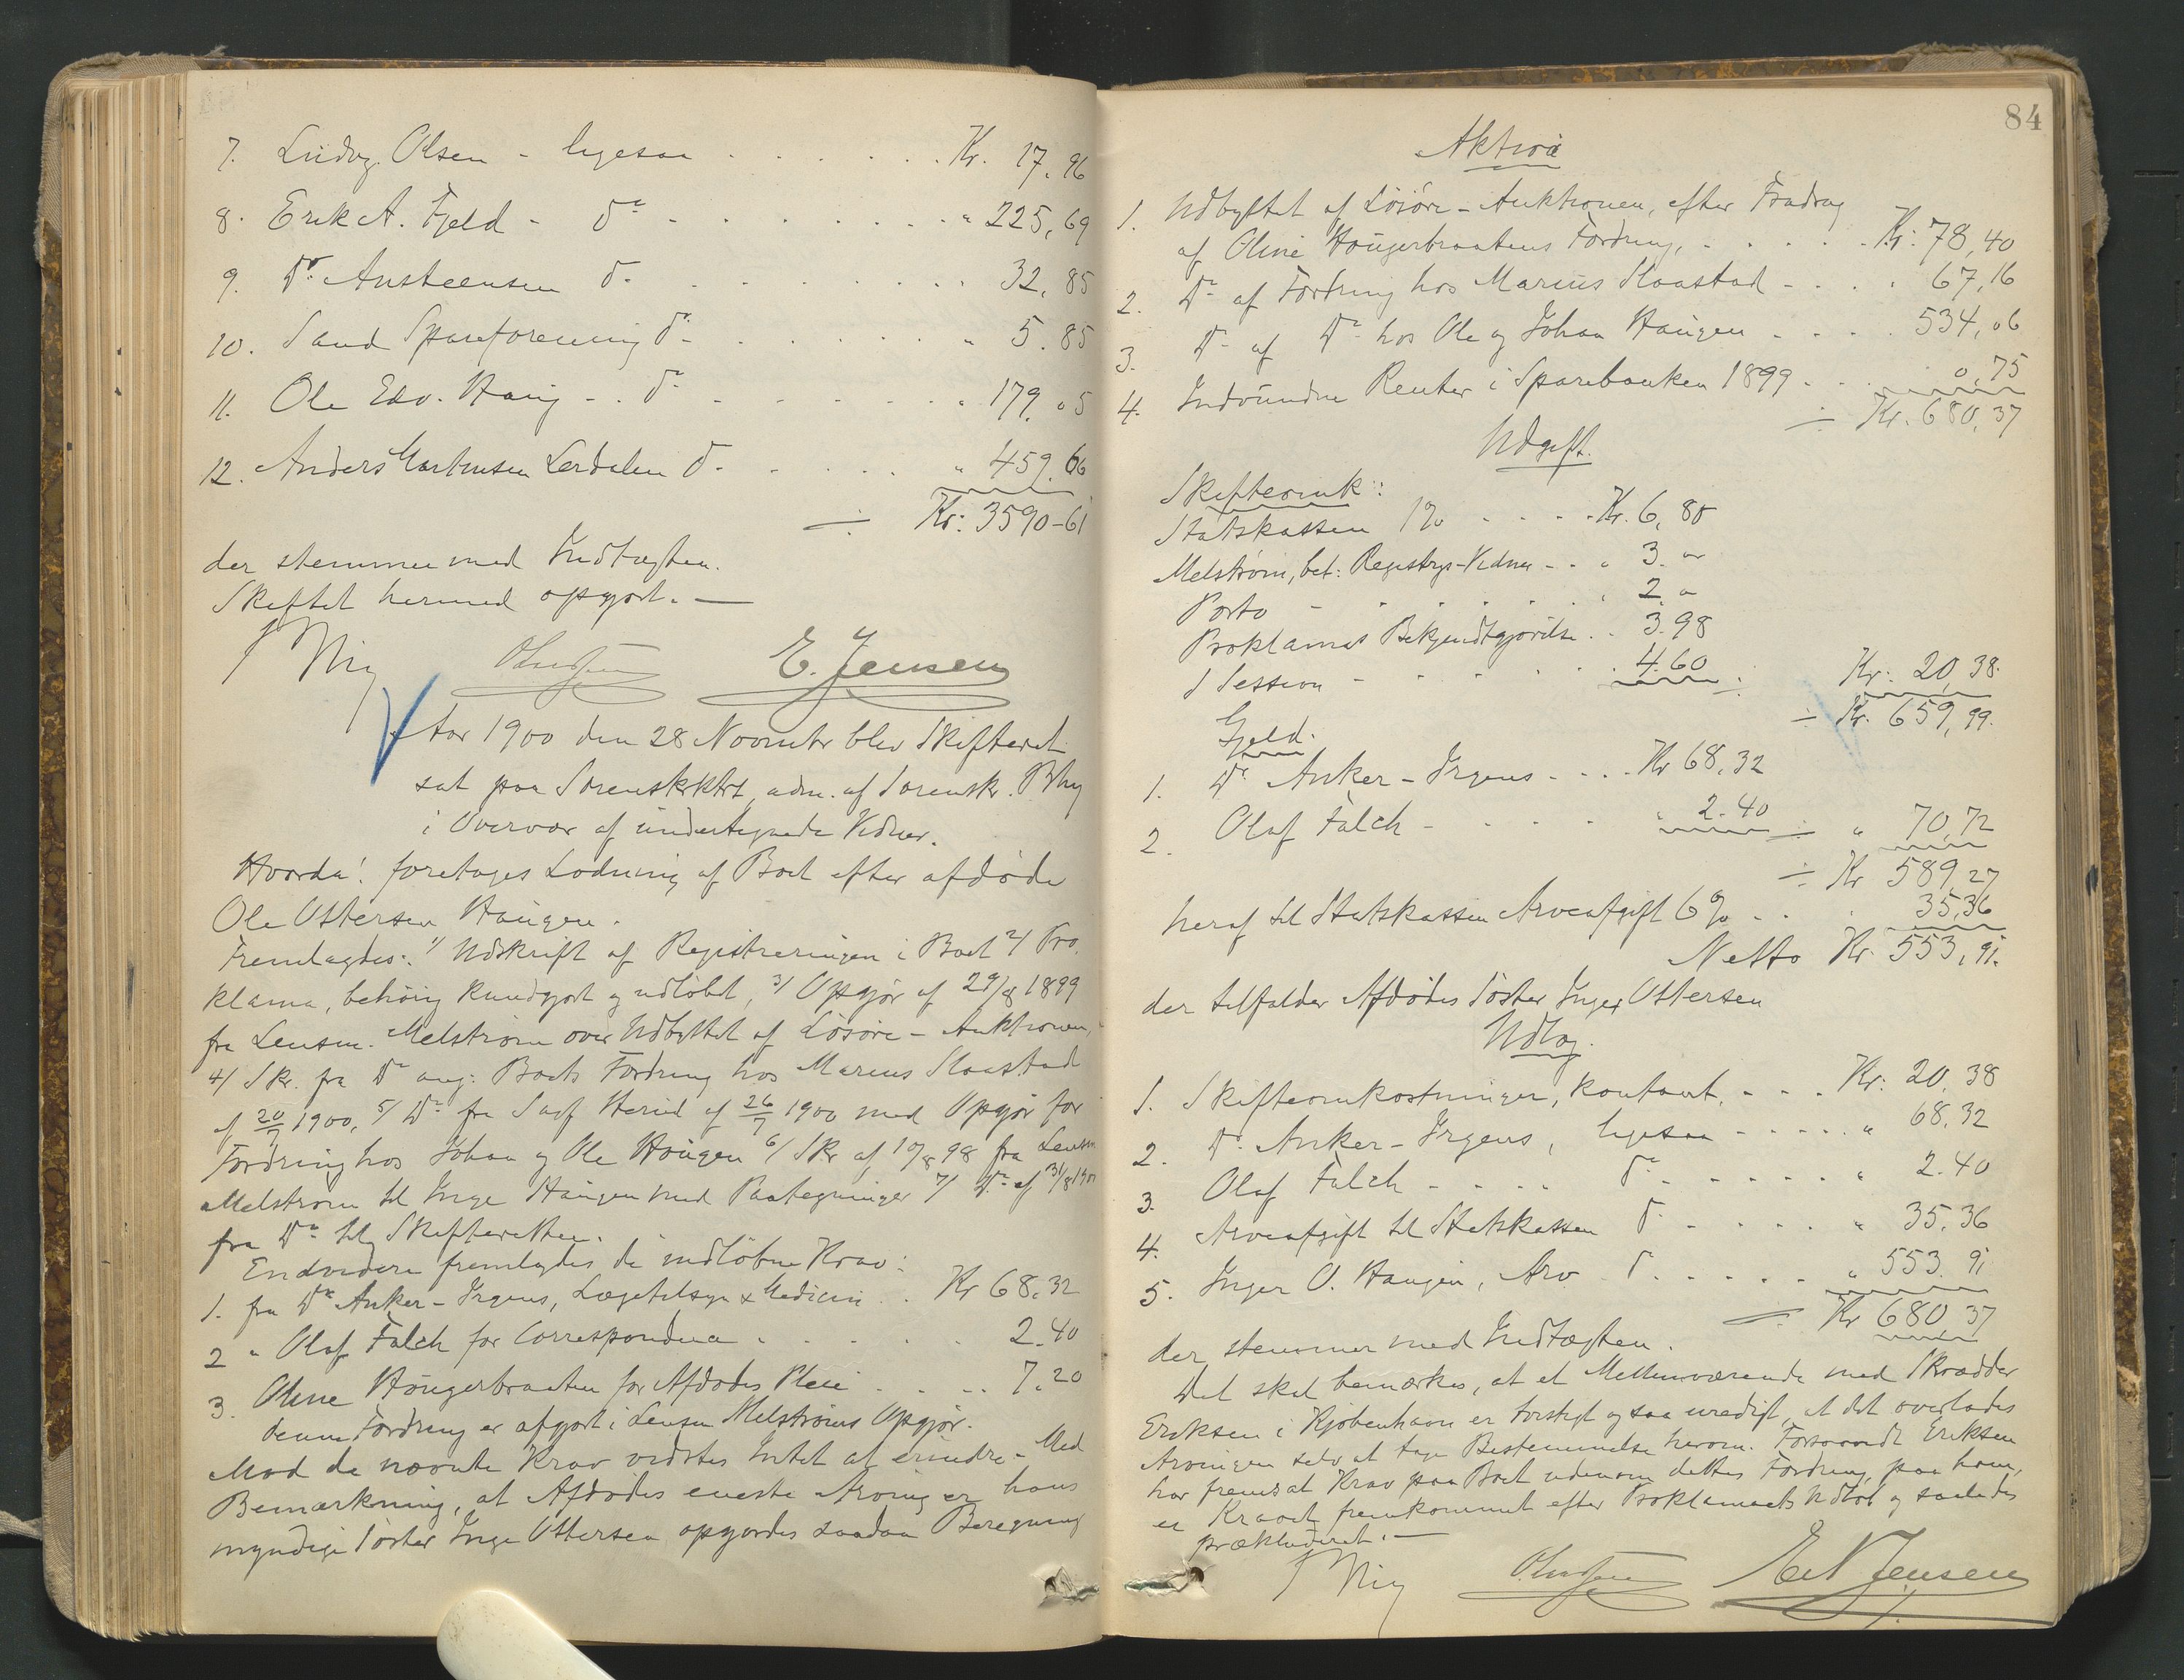 7. Ludvg. Olsen - ligesaa . . . . . . . Kr. 17.96
8. Erik A. Fjeld - do - . . . . . . . " 225,69
9. Dr. Ansteensen do . . . . . . . . . 32.85
10. Sand Spareforening do . . . . . . " 5.85
11. Ole Edv. Haug - . do - . . . . . . " 179.05
12. Anders Martinsen Lerdalen do . . . . . " 459.66
÷ Kr: 3590-61
der stemmer med Indtægten.
Skiftet hermed opgjort. —
E. Jensen
Aar 1900 den 28 Novembr blev Skifteret
sat paa Sorenskrktrt, adm. af Sorenskr.
i Overvær af undertegnede Vidner.
Hvorda! foretoges Lodning af Boet efter afdöde
Ole Ottersen Haugen.
Fremlagdes: 1/ Udskrift af Registreringen i Boet 2/ Pro
klama, behörig kundgjort og udlöbet, 3/ Opgjör af 29/8 1899
fra Lensm. Melström over Udbyttet af Lösöre - Auktionen,
4/ Skr. fra Do ang: Boets Fordring hos Marius Slaastad
af 20/7 1900, 5/ Do fra Sagf Herud af 26/7 1900 med Opgjör for
Fordring hos Johan og Ole Haugen 6/ Skr af 10/8 98 fra Lensm
Melström til Inge Haugen med Paategninger 7/ Do af 31/8 1900
fra Do til Skifteretten.
Endvidere fremlagdes de indlöbne Krav:
1. fra Dr Anker - Irgens, Lægetilsyn & Medicin . . Kr 68.32
2 " Olaf Falch for Correspondence . . . . . 2.40
3. Oline Haugerbraaten for Afdödes Pleie . . . . 7.20
denne Fordring er afgjort i Lensm Melströms Opgjör.
Mod de nævnte Krav vidstes Intet at erindre - Med
Bemærkning, at Afdödes eneste Arving er hans
myndige Söster Inge Ottersen opgjordes saadan Beregning
84
Aktiva
1. Udbyttet af Lösöre - Auktionen, efter Fradrag
af Oline Haugerbraatens Fordring, - . . . . Kr: 78,40
2. Do af Fordring hos Marius Slaastad - . . . 67,16
3. Do af Do hos Ole og Johan Haugen - . . . 534,06
4. Indvundne Renter i Sparebanken 1899 . . . 0,75
÷ Kr. 680,37
Udgift.
Skifteomk:
Statskassen 1% . . . . Kr. 6,80
Melström, bet: Registrgs-Vidner - . " 3. "
Porto - . . . . . . " 2. "
Proklamas Bekjendtgjörelse . . 3.98
1 Session - . . . . . . 4.60 ÷ Kr: 20,38.
÷ Kr. 659,99.
Gjeld.
1. Dr Anker - Irgens - . . . Kr 68,32
2. Olaf Falch - . . . . " 2.40 ÷ " 70,72
÷ Kr 589,27
heraf til Statskassen Arveafgift 6% . . . 35,36
Netto Kr. 553,91.
der tilfalder Afdödes Söster Inger Ottersen
Udlæg.
1. Skifteomkostninger, kontant, - . . Kr: 20.38
2. Dr. Anker - Irgens, ligesaa - . . . . " 68.32
3. Olaf Falch - . . . do - . . . . . . " 2.40
4. Arveafgift til Statskassen do - . . . . " 35.36
5. Inger O. Haugen, Arv do . . . . . " 553.91
= Kr 680,37
der stemmer med Indtægten.
Det skal bemærkes, at et Mellemværende med Skrædder
Eriksen i Kjöbenhavn er forsögt og saa uredigt, at det overlades
Arvingen selv at tage Bestemmelse herom. Forsaavidt Eriksen
har fremsat Krav paa Boet udenom dettes Fordring, paa ham,
er Kravet fremkommet efter Proklamaets Udlöb og saaledes
prækluderet. —
Jensen